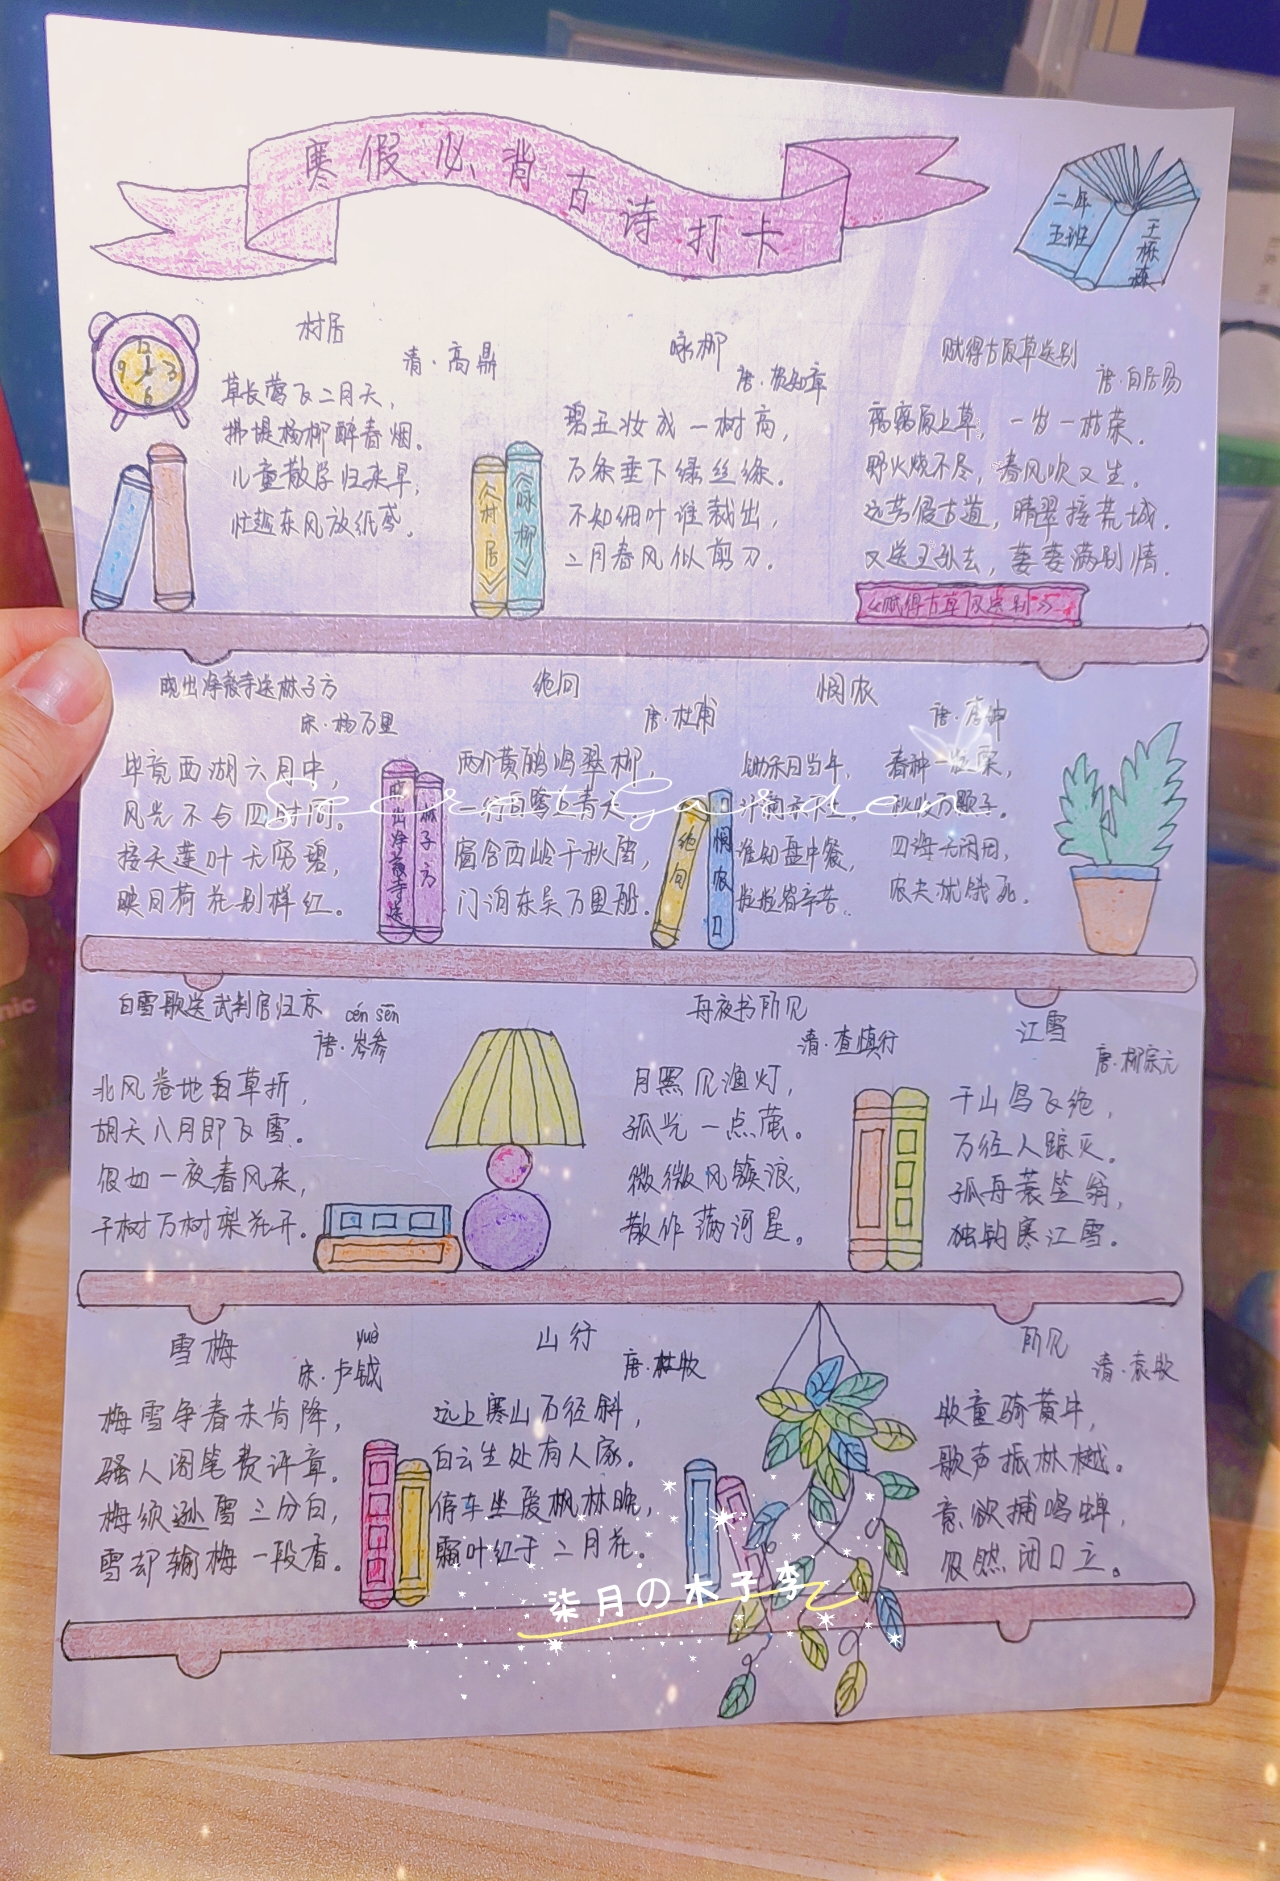 寒假必背古诗打卡
二年
五班
王
栋
栋
12
3
6
9
村居
清·高鼎
草长莺飞二月天，
拂堤杨柳醉春烟。
儿童散学归来早，
忙趁东风放纸鸢。
《村居》
《咏柳》
咏柳
唐·贺知章
碧玉妆成一树高，
万条垂下绿丝绦。
不知细叶谁裁出，
二月春风似剪刀。
赋得古原草送别
唐·白居易
离离原上草，一岁一枯荣。
野火烧不尽，春风吹又生。
远芳侵古道，晴翠接荒城。
又送王孙去，萋萋满别情。
晓出净慈寺送林子方
宋·杨万里
毕竟西湖六月中，
风光不与四时同。
接天莲叶无穷碧，
映日荷花别样红。
晓出净慈寺送
林子方
绝句
唐·杜甫
两个黄鹂鸣翠柳，
一行白鹭上青天。
窗含西岭千秋雪，
门泊东吴万里船。
绝句
悯农
悯农
唐·李绅
锄禾日当午，
汗滴禾下土。
谁知盘中餐，
粒粒皆辛苦。
春种一粒粟，
秋收万颗子。
四海无闲田，
农夫犹饿死。
Secret Garden
白雪歌送武判官归京
cén sēn
唐·岑参
北风卷地白草折，
胡天八月即飞雪。
忽如一夜春风来，
千树万树梨花开。
舟夜书所见
清·查慎行
月黑见渔灯，
孤光一点萤。
微微风簇浪，
散作满河星。
江雪
唐·柳宗元
千山鸟飞绝，
万径人踪灭。
孤舟蓑笠翁，
独钓寒江雪。
雪梅
yuè
宋·卢钺
梅雪争春未肯降，
骚人阁笔费评章。
梅须逊雪三分白，
雪却输梅一段香。
山行
唐·杜牧
远上寒山石径斜，
白云生处有人家。
停车坐爱枫林晚，
霜叶红于二月花。
所见
清·袁牧
牧童骑黄牛，
歌声振林樾。
意欲捕鸣蝉，
忽然闭口立。
柒月の木子李